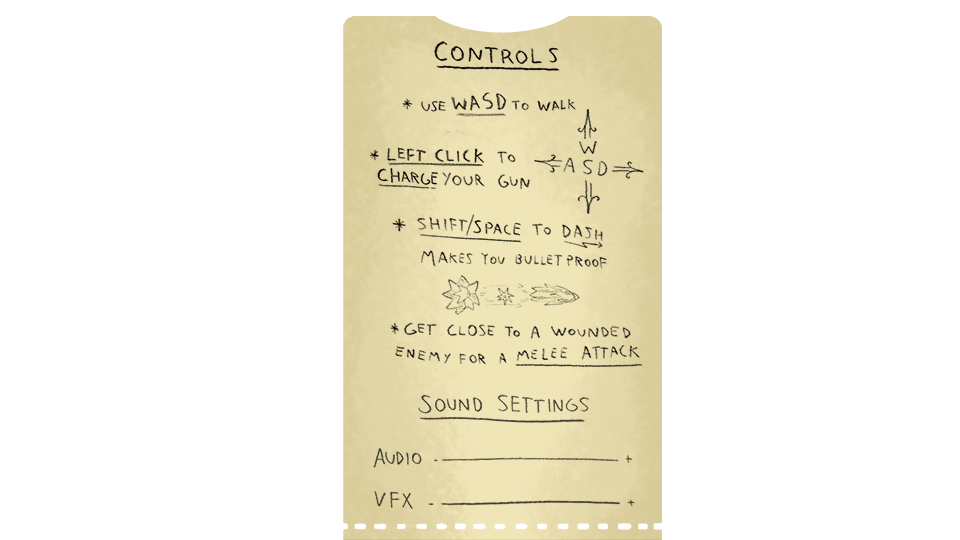 CONTROLS
* USE WASD TO WALK
W
* LEFT CLICK TO
A S D
CHARGE YOUR GUN
* SHIFT/SPACE TO DASH
MAKES YOU BULLETPROOF
* GET CLOSE TO A WOUNDED
ENEMY FOR A MELEE ATTACK
SOUND SETTINGS
AUDIO - +
VFX - +